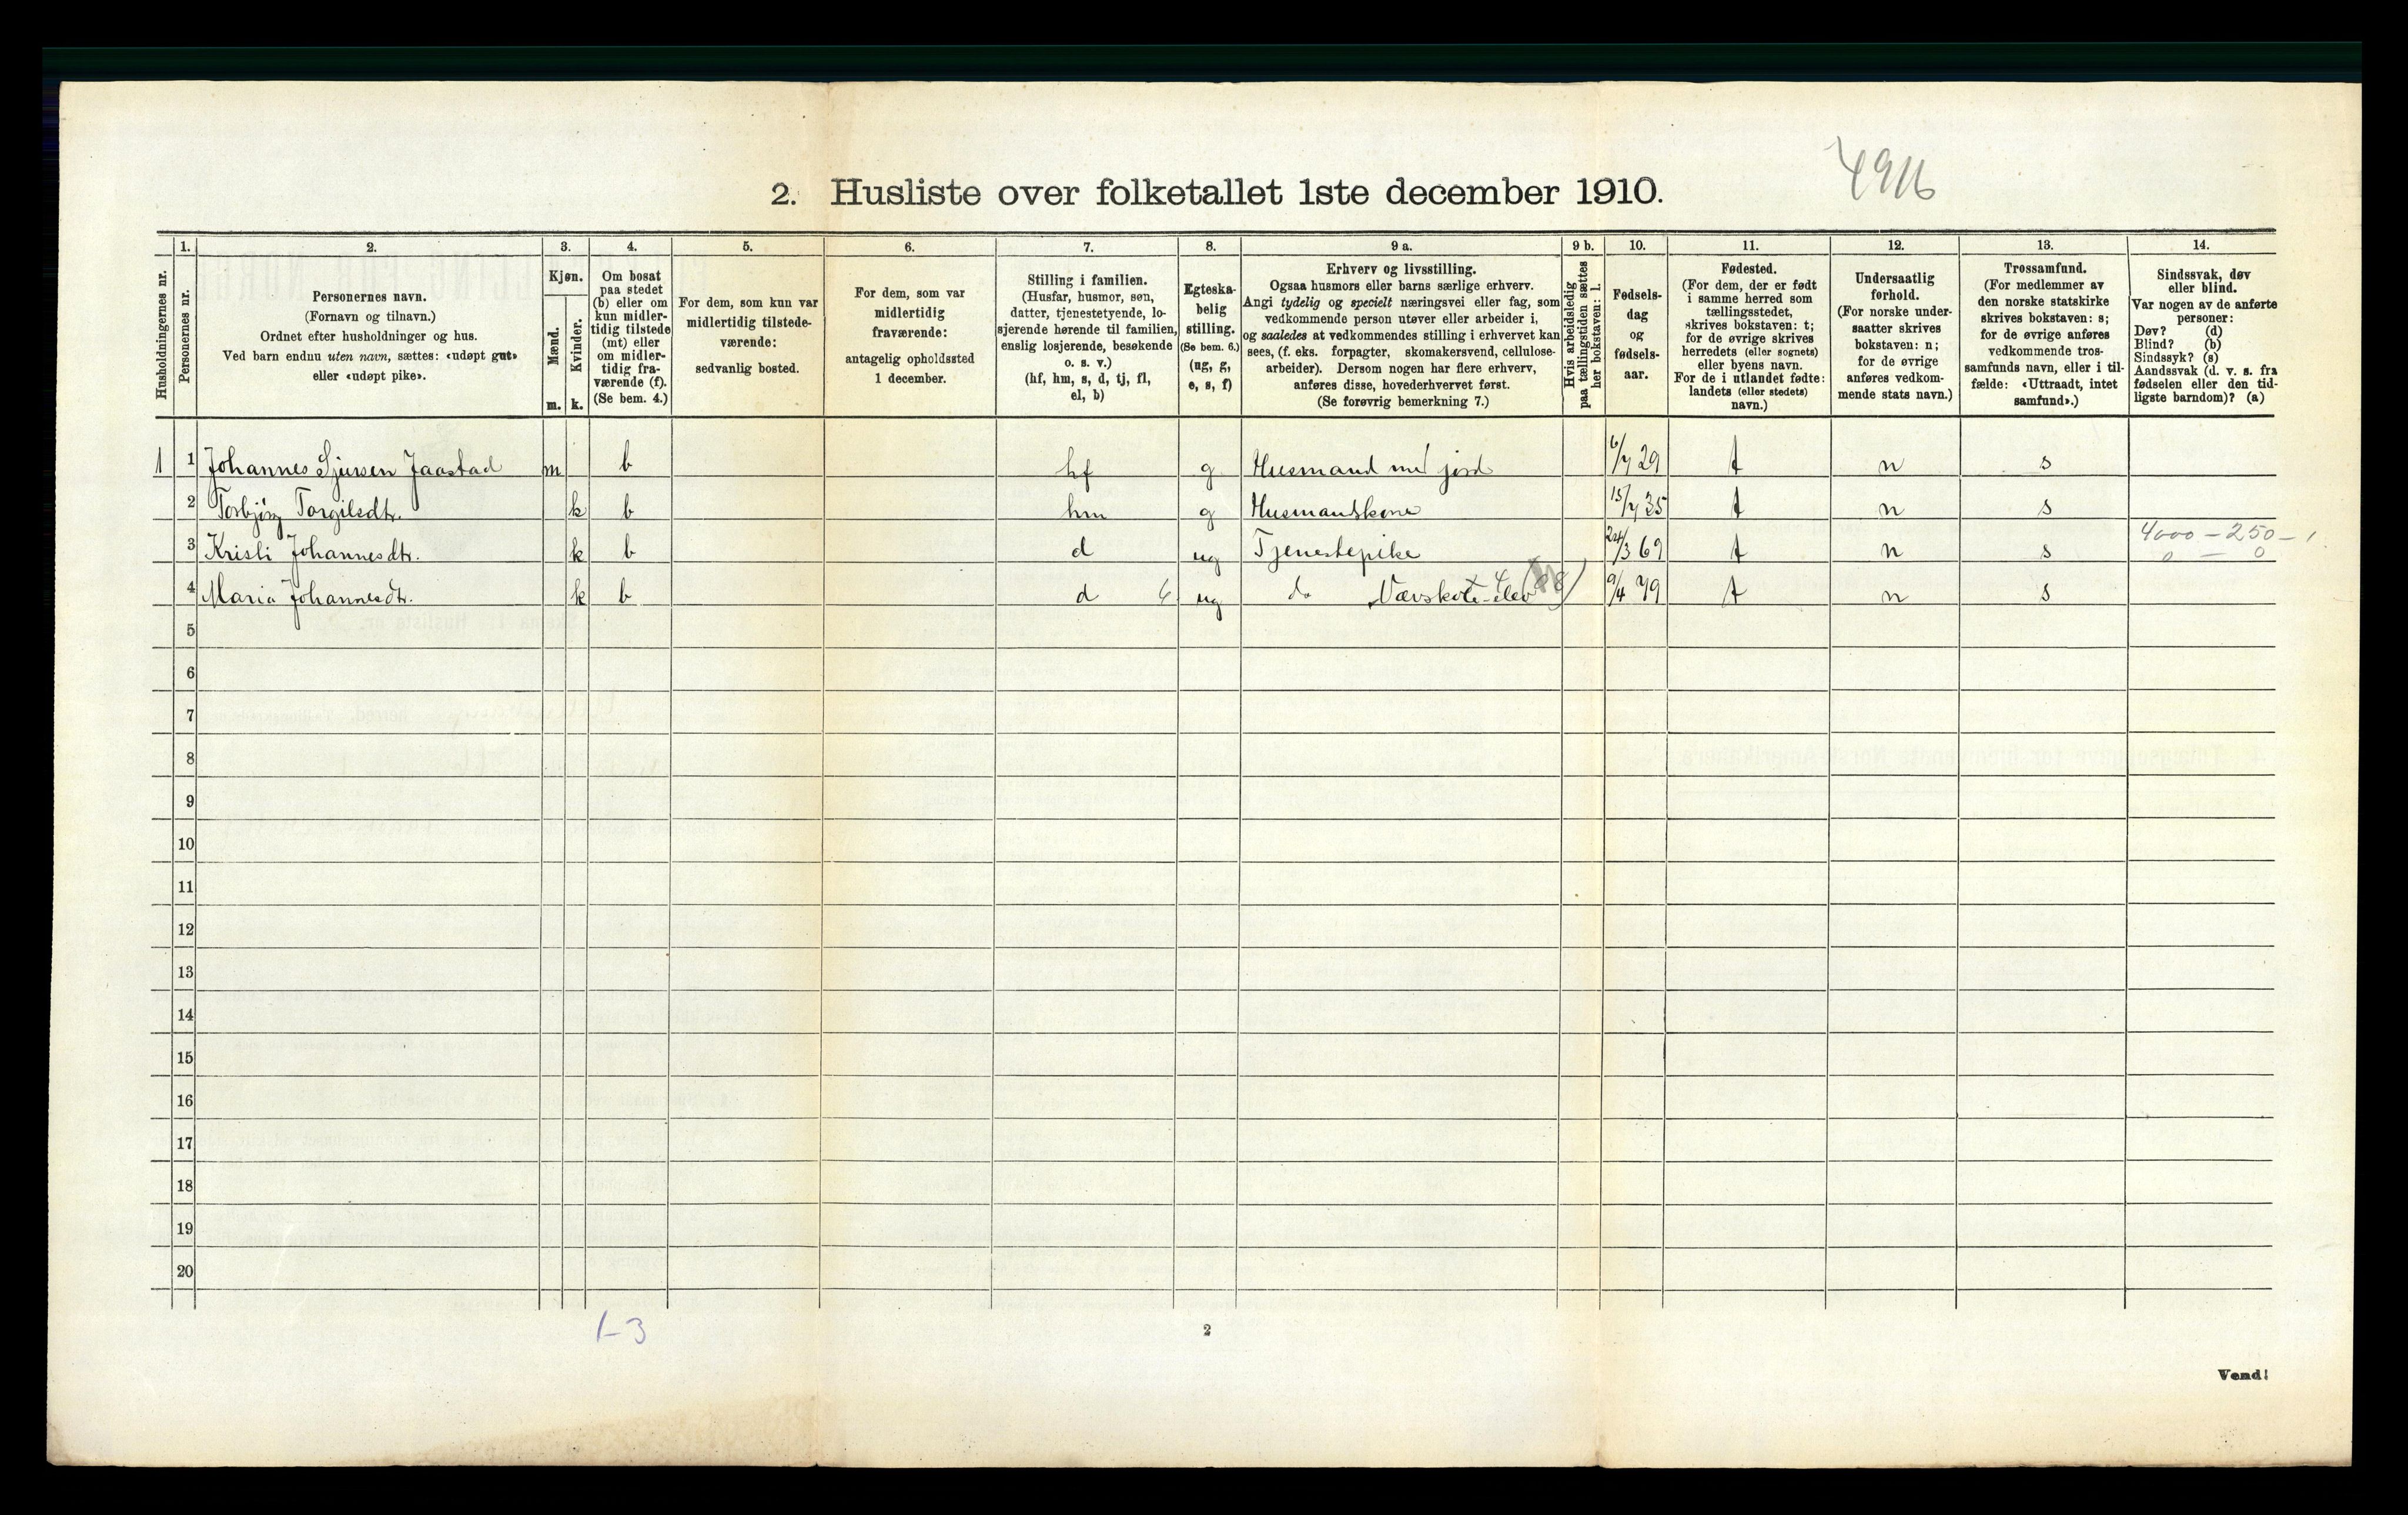 2. Husliste over folketallet 1ste december 1910.
Husholdningernes nr.
1.
Personernes nr.
2.
Personernes navn.
(Fornavn og tilnavn.)
Ordnet efter husholdninger og hus.
Ved barn endnu uten navn, sættes: «udøpt gut»
eller «udøpt pike».
3.
Kjøn.
Mænd.
Kvinder.
m. k.
4.
Om bosat
paa stedet
(b) eller om
kun midler-
tidig tilstede
(mt) eller
om midler-
tidig fra-
værende (f).
(Se bem. 4.)
5.
For dem, som kun var
midlertidig tilstede-
værende:
sedvanlig bosted.
6.
For dem, som var
midlertidig
fraværende:
antagelig opholdssted
1 december.
7.
Stilling i familien.
(Husfar, husmor, søn,
datter, tjenestetyende, lo-
sjerende hørende til familien,
enslig losjerende, besøkende
o. s. v.)
(hf, hm, s, d, tj, fl,
el, b)
8.
Egteska-
belig
stilling.
(Se bem. 6.)
(ug, g,
e, s, f)
9 a.
Erhverv og livsstilling.
Ogsaa husmors eller barns særlige erhverv.
Angi tydelig og specielt næringsvei eller fag, som
vedkommende person utøver eller arbeider i,
og saaledes at vedkommendes stilling i erhvervet kan
sees, (f. eks. forpagter, skomakersvend, cellulose-
arbeider). Dersom nogen har flere erhverv,
anføres disse, hovederhvervet først.
(Se forøvrig bemerkning 7.)
9 b.
Hvis arbeidsledig
paa tællingstiden sættes
her bokstaven: l.
10.
Fødsels-
dag
og
fødsels-
aar.
11.
Fødested.
(For dem, der er født
i samme herred som
tællingsstedet,
skrives bokstaven: t;
for de øvrige skrives
herredets (eller sognets)
eller byens navn.
For de i utlandet fødte:
landets (eller stedets)
navn.)
12.
Undersaatlig
forhold.
(For norske under-
saatter skrives
bokstaven: n;
for de øvrige
anføres vedkom-
mende stats navn.)
13.
Trossamfund.
(For medlemmer av
den norske statskirke
skrives bokstaven: s;
for de øvrige anføres
vedkommende tros-
samfunds navn, eller i til-
fælde: «Uttraadt, intet
samfund».)
14.
Sindssvak, døv
eller blind.
Var nogen av de anførte
personer:
Døv? (d)
Blind? (b)
Sindssyk? (s)
Aandssvak (d. v. s. fra
fødselen eller den tid-
ligste barndom)? (a)
1 1 Johannes Sjursen Jaastad m b hf g Husmand med jord 6/7 29 t n s
2 Torbjørg Torgilsdtr. k b hm g Husmandskone 15/7 35 t n s
3 Kristi Johannesdtr. k b d ug Tjenestepike 24/3 69 t n s 4000 – 250 – 1
0 — 0
4 Maria Johannesdtr. k b d 6 ug do Vævskole-elev 9/4 79 t n s
5
6
7
8
9
10
11
12
13
14
15
16
17
18
19
20
1-3
2
Vend!